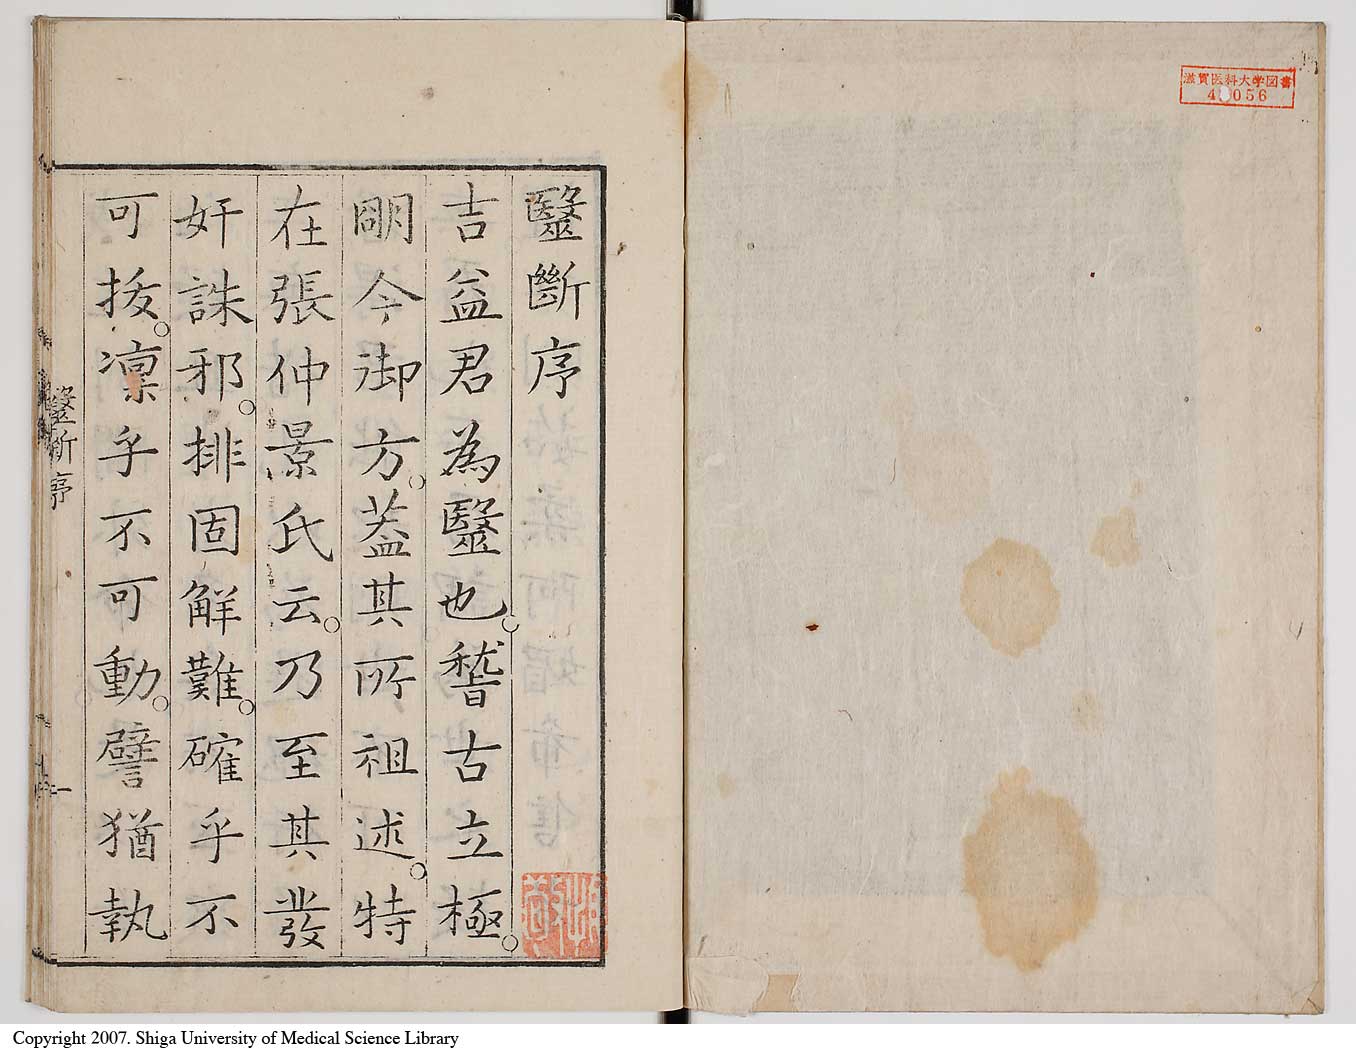 滋賀医科大学図書
毉斷序
吉益君為毉也。稽古立極。
明今御方。葢其所祖述。特
在張仲景氏云。乃至其發
奸誅邪。排固解難。確乎不
可拔。凛乎不可動。譬猶執
毉斷序
一
Copyright 2007. Shiga University of Medical Science Library